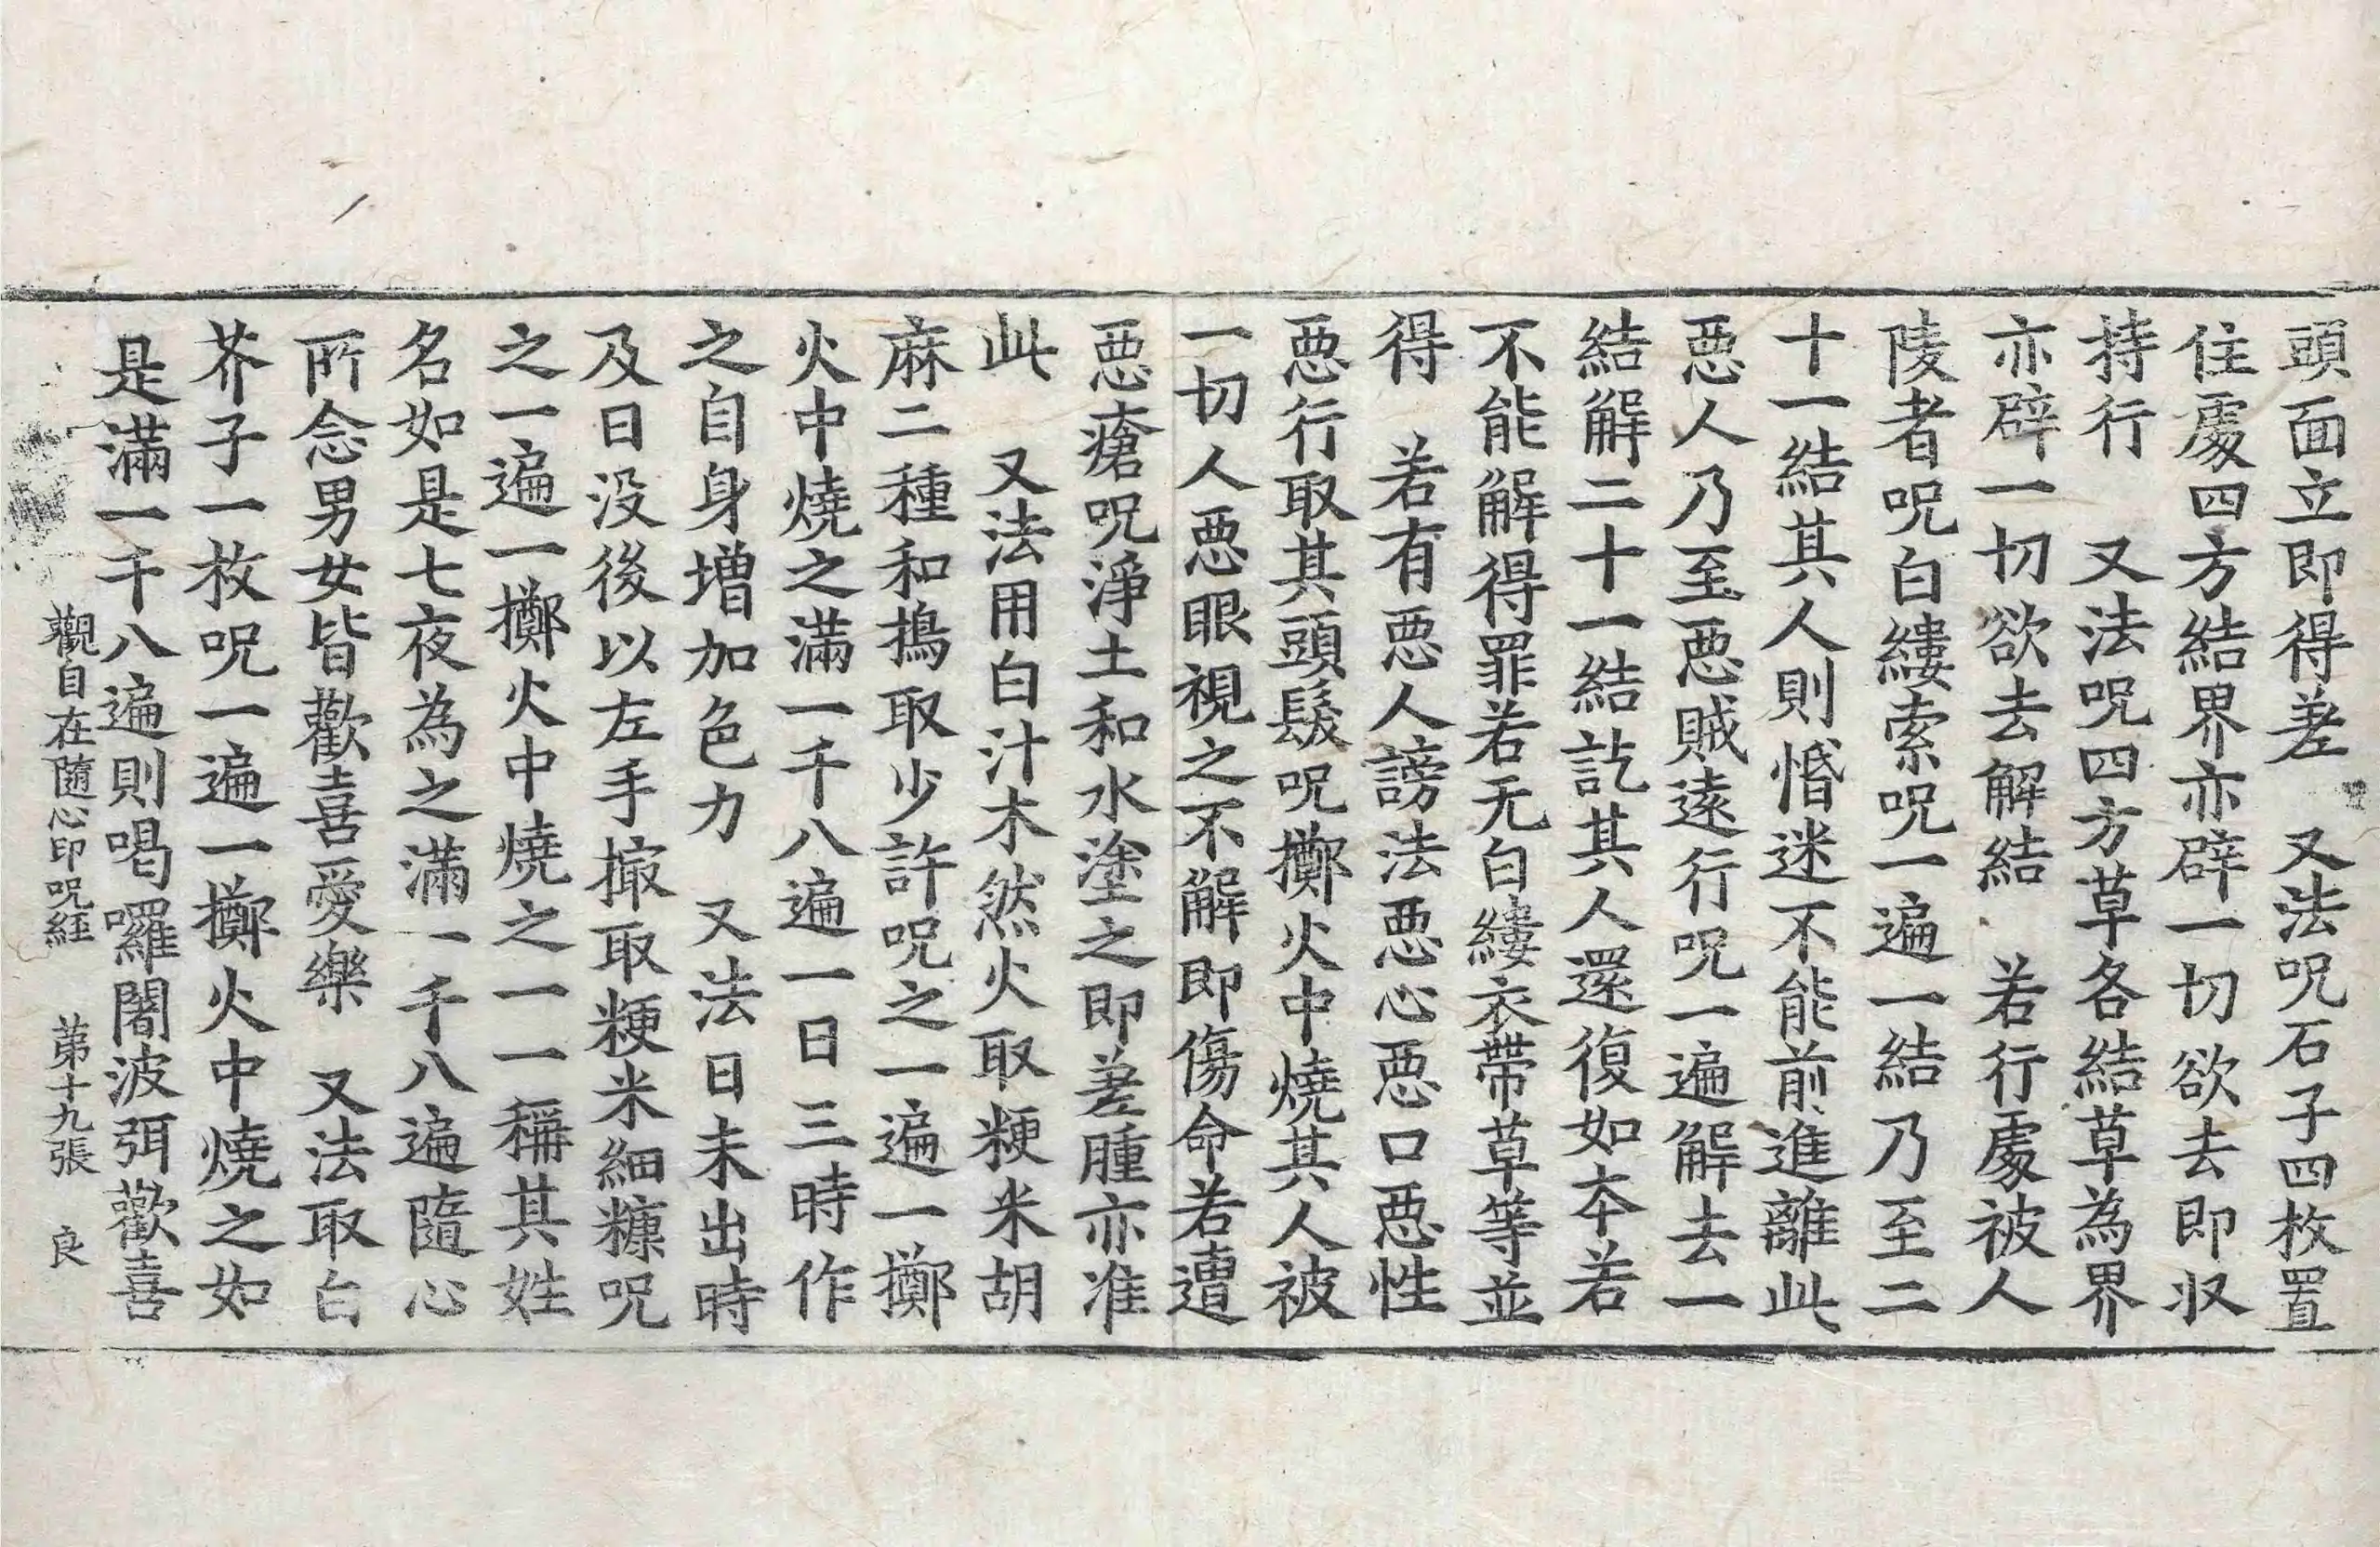 頭面立即得差　又法呪石子四枚置
住處四方結界亦辟一切欲去即収
持行　又法呪四方草各結草為界
亦辟一切欲去解結　若行處被人
陵者呪白縷索呪一遍一結乃至二
十一結其人則惛迷不能前進離此
惡人乃至惡賊遠行呪一遍解去一
結解二十一結訖其人還復如本若
不能解得罪若无白縷衣帶草等並
得　若有惡人謗法惡心惡口惡性
惡行取其頭髮呪擲火中燒其人被
一切人惡眼視之不解即傷命若遭
惡瘡呪淨土和水塗之即差腫亦准
此　又法用白汁木然火取粳米胡
麻二種和擣取少許呪之一遍一擲
火中燒之滿一千八遍一日三時作
之自身增加色力　又法日未出時
及日没後以左手撮取粳米細糠呪
之一遍一擲火中燒之一一稱其姓
名如是七夜為之滿一千八遍隨心
所念男女皆歡喜愛樂　又法取白
芥子一枚呪一遍一擲火中燒之如
是滿一千八遍則喝囉闍波弭歡喜
觀自在隨心印呪経　第十九張　良